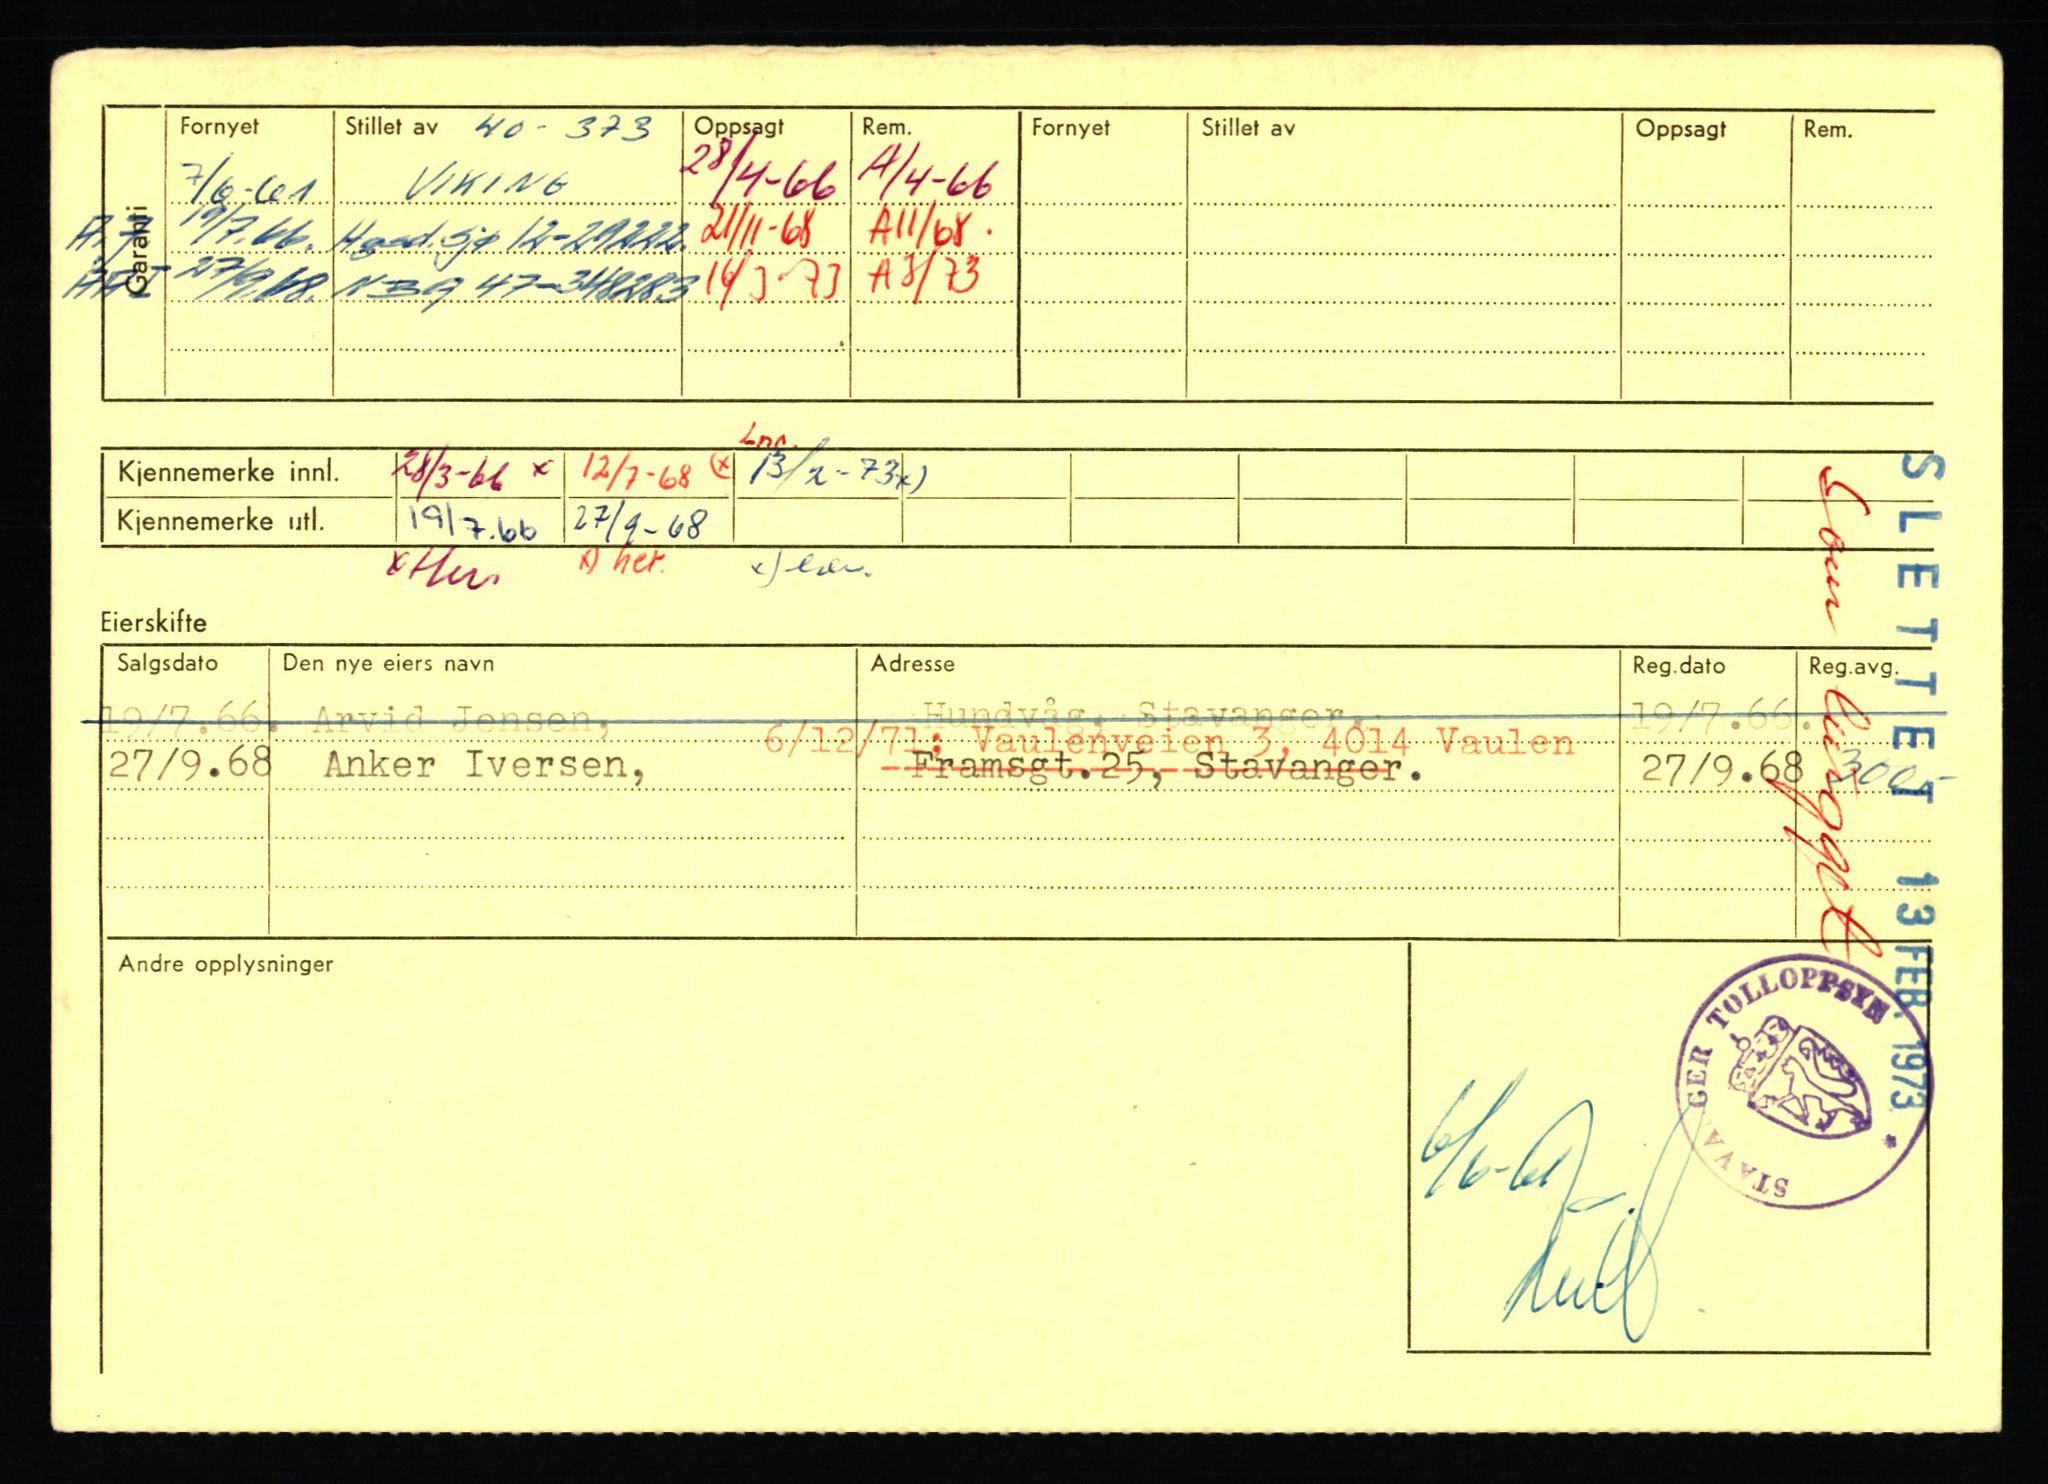 Garanti
Fornyet Stillet av 40-373 Oppsagt Rem. Fornyet Stillet av Oppsagt Rem.
7/6-61 VIKING 28/4-66 A/4-66
19/7.66. 12-29222. 21/11-68 A11/68.
27/9.68. 47-348283 A3/73
Kjennemerke innl. 28/3-66 x 12/7-68 (x 13/2-73 x)
Kjennemerke utl. 19/7.66 27/9-68
x) her.
Eierskifte
Salgsdato Den nye eiers navn Adresse Reg.dato Reg.avg.
19/7.66. Arvid Jensen, Hundvåg, Stavanger. 19/7.66.
6/12/71: Vaulenveien 3, 4014 Vaulen
27/9.68 Anker Iversen, Framsgt.25, Stavanger. 27/9.68 300,-
Andre opplysninger
SLETTET 13 FEB. 1973
Som
STAVANGER TOLLOPPSYN *
6/6-61